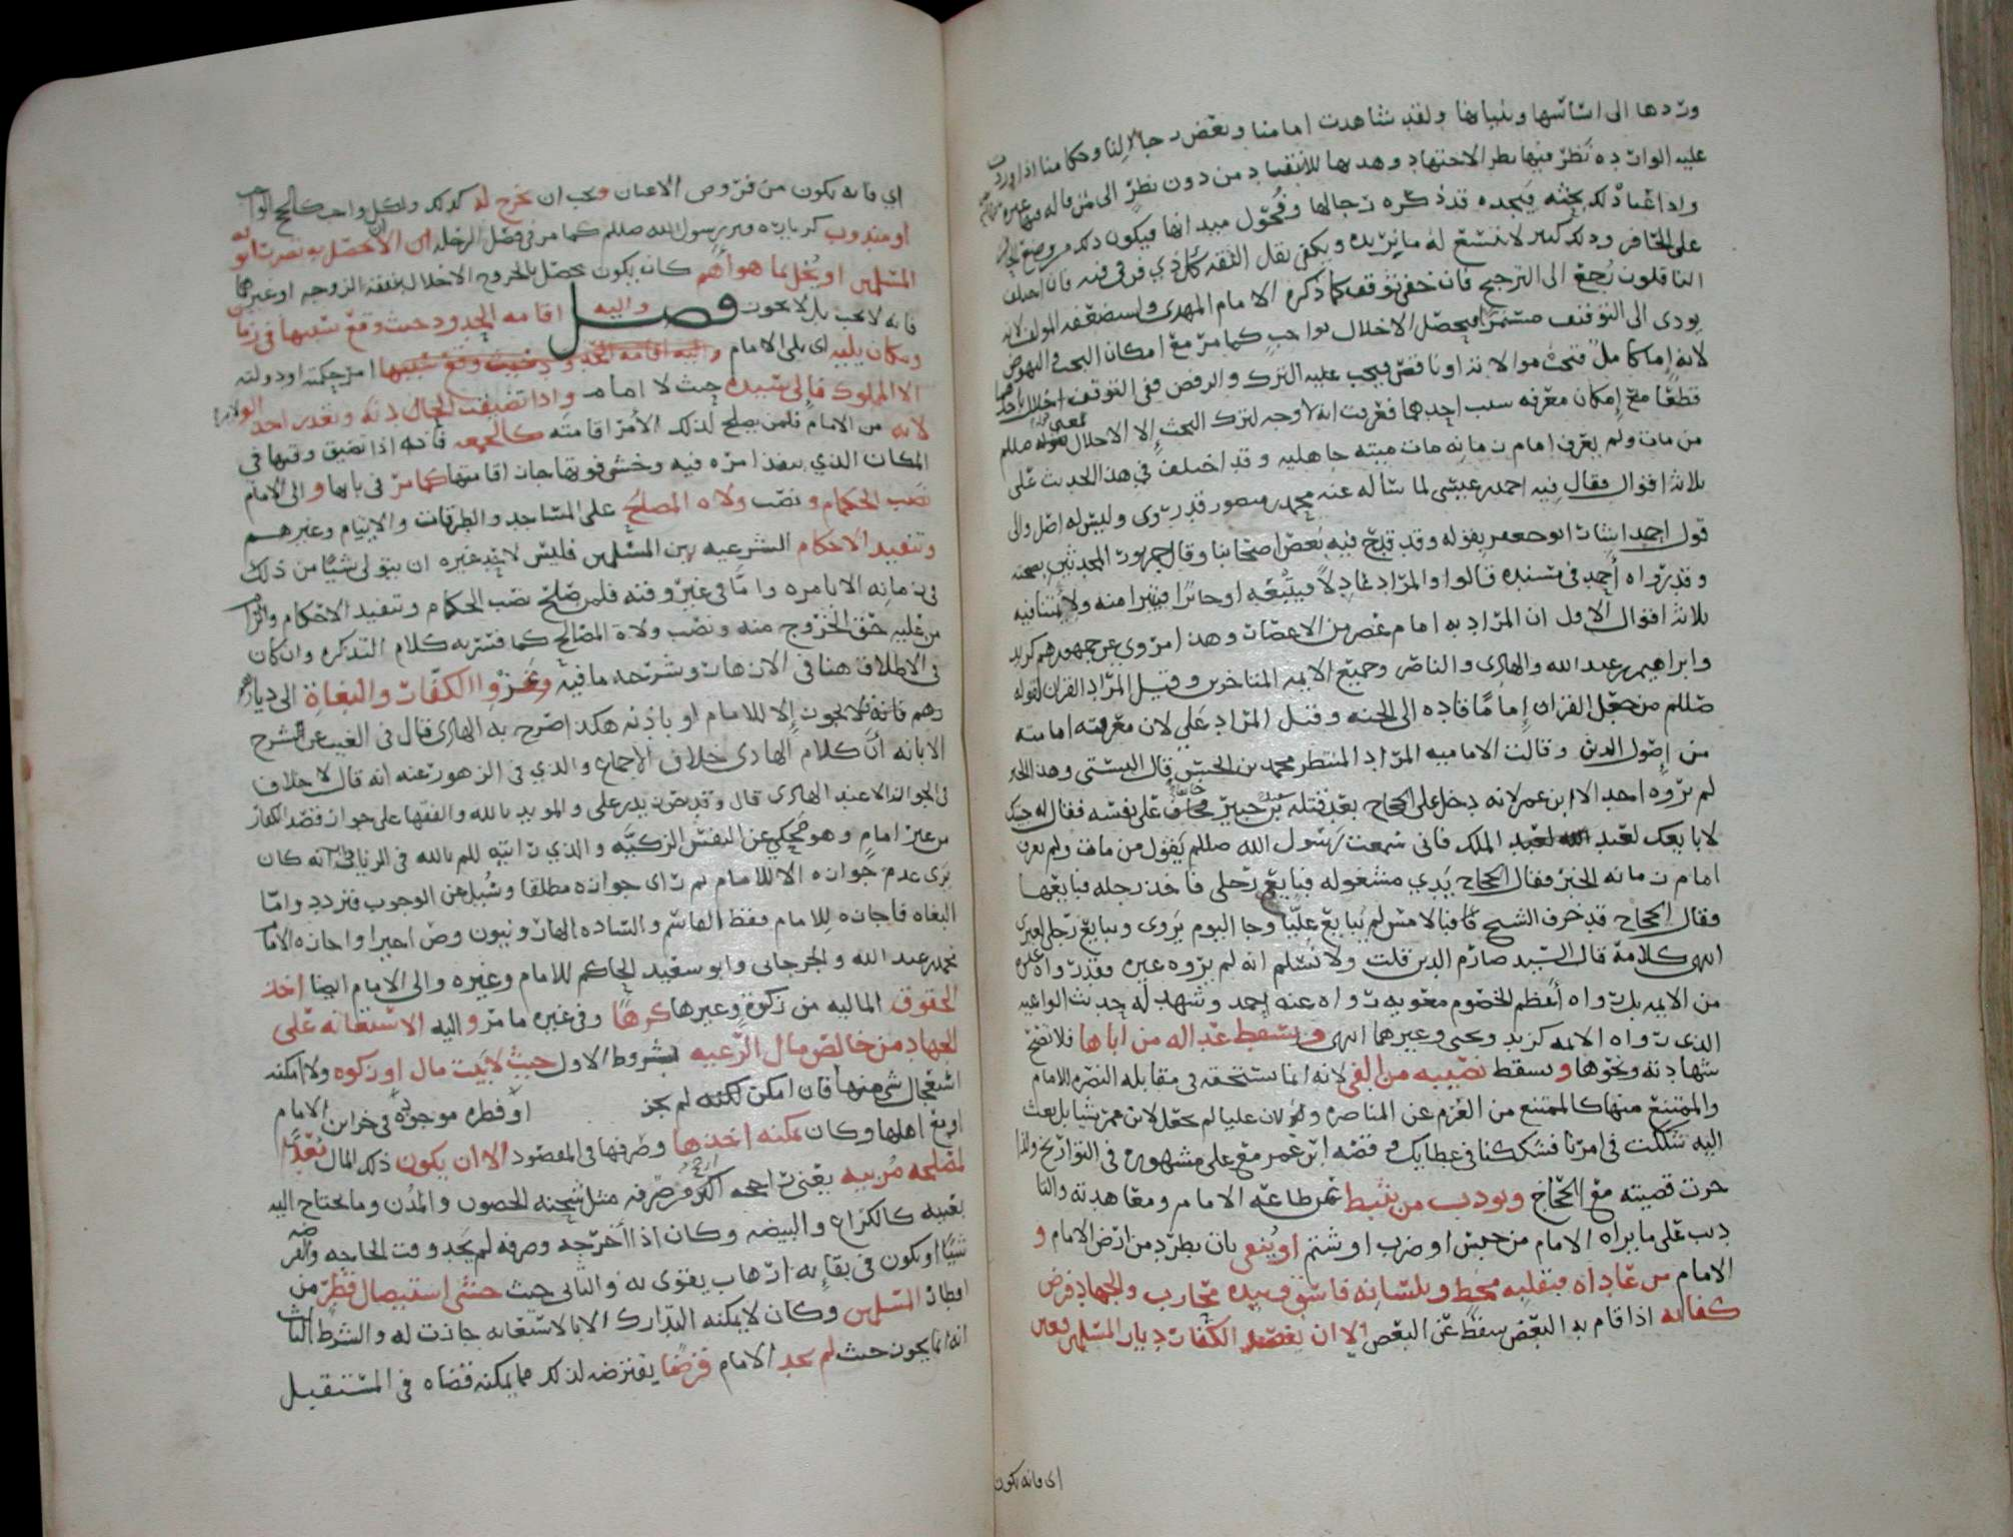 وردها الى اساسها وبنيانها ولقد شاهدت امامنا وبعض رجالا لنا وحكامنا اذا وردت
عليه الواردة نظر فيها بطر الاجتهاد وهديها للانتقاد من دون نظر الى من قاله فيها غيره
واذا غيا ذلك بحثه فيجده قد ذكره رجالها وفحول ميدانها فيكون ذلك من وضع
على الحافر وذلك كثير لا نتسع له ما نريده ويكفي نقل الثقه كل ذي فن في فنه فان اختلف
الناقلون رجع الى الترجيح فان خفي توقف كما ذكره الامام المهدي واستضعفه المولف لانه
يودي الى التوقف مستمرا فيحصل الاخلال بواجب كما مر مع امكان البحث في النهوض
لانه اما كامل فتجب موالاته او ناقص فيجب عليه الترك والرفض ففي التوقف اخلال باحدهما
قطعا مع امكان معرفه سبب احدهما فعرفت انه لا وجه لترك البحث الا الاخلال بمعنى قوله صللم
من مات ولم يعرف امام زمانه مات ميته جاهليه وقد اختلف في هذا الحديث على
ثلاثه اقوال فقال فيه احمد بن عيسى لما ساله عنه محمد بن منصور قد روى وليس له اصل والى
قول احمد اشار ابو جعفر بقوله وقد قدح فيه بعض اصحابنا وقال جمهور المحدثين بصحته
وقد رواه احمد في مسنده قالوا والمراد عادلا فيتبعه او جائرا فيتبرا منه ولا يتنافيه
ثلاثه اقوال الاول ان المراد به امام عصر من الاعصار وهذا مروي عن جمهورهم كزيد
وابراهيم بن عبد الله والهادي والناصر وجميع الايمه المتاخرين وقيل المراد القران لقوله
صللم من جعل القران اماما قاده الى الجنه وقيل المراد علي لان معرفته امامته
من اصول الدين وقالت الاماميه المراد المنتظر محمد بن الحسن قال البستي وهذا الخبر
لم يروه احد الا ابن عمر لانه دخل على الحجاج بعد قتله بن جبير مخاف على نفسه فقال له جيتك
لابايعك لعبد الملك فاني سمعت رسول الله صللم يقول من مات ولم يعرف
امام زمانه الخبر فقال الحجاج يدي مشغوله فبايع رجلي فاخذ رجله فبايعها
وقال الحجاج قد خرف الشيخ كان بالامس لم يبايع عليا وجا اليوم يروى ويبايع رجلي لغيري
انتهى كلامه قال السيد صارم الدين قلت ولا نسلم انه لم يروه غيره فقد رواه غيره
من الايمه بل رواه اعظم الخصوم معويه رواه عنه احمد وشهد له حديث الواعيه
الذي رواه الايمه كزيد ويحيى وغيرهما انتهى ويسقط عداله من اباها فلا تصح
شهادته ونحوها ويسقط نصيبه من الفي لانه انما يستحقه في مقابله النصره للامام
والممتنع منها كالممتنع من العزم عن المناصره ولان عليا لم يجعل لابن عمر شيا بل بعث
اليه شككت في امرنا فشككنا في عطايك وقصه ابن عمر مع علي مشهوره في التواريخ وانما
جرت قصيته مع الحجاج ويودب من يثبط عن طاعه الامام ومعاهدته والتا
ديب على ما يراه الامام من حبس او ضرب او شتم او ينفى بان يطرد من ارض الامام و
الامام من عاداه فبقلبه مخط وبلسانه فاسق وبيده محارب والجهاد فرض
كفايه اذا قام به البعض سقط عن البعض الا ان يقصد الكفار ديار المسلمين فعين
اى فانه يكون
اي فانه يكون من فروض الاعيان ويجب ان يخرج له كذلك ولكل واجب كالحج الواجب
او مندوب كزيارة قبر رسول الله صللم كما مر في فضل الرحله ان لا تحصل به نصرة له
المسلمين او يخل بما هو اهم كان يكون يحصل بالخروج الاخلال بنفقه الزوجه او غيرها
فانه لا يجب بل لا يجوز فصل واليه اقامه الحدود حيث وقع سببها في زمن
ومكان يليه اى يلي الامام واليه اقامه الحدود حيث وقع سببها امر حكمه او دولته
الا المملوك فالى سيده حيث لا امام واذا تضيقت الحال دنه وتعذر احد الولاه
لانه من الامام فلمن يصلح لذلك الامر اقامته كالجمعه فانه اذا تضيق وقتها في
المكان الذي ينفذ امره فيه وخشي فوتها جاز اقامتها كما مر في بابها والى الامام
نصب الحكام ونصب ولاه المصالح على المساجد والطرقات والايتام وغيرهم
وتنفيذ الاحكام الشرعيه بين المسلمين فليس لاحد غيره ان يتولى شيا من ذلك
في زمانه الا بامره واما في غير وقته فلمن صلح نصب الحكام وتنفيذ الاحكام والزام
من عليه حق الخروج منه ونصب ولاة المصالح كما فسر به كلام التذكره وان كان
في الاطلاق هنا في الازهار وشرحه ما فيه وغزوا الكفار والبغاة الى ديار
رهم فانه لا يجوز الا للامام او باذنه هكذا صرح به الهادي قال في الغيث عن شرح
الابانه ان كلام الهادي خلاف الاجماع والذي في الزهور عنه انه قال لا خلاف
في الجواز الا عند الهادي قال وقد نص زيد بن علي والمويد بالله والفقها على جواز قصد الكفار
من غير امام وهو محكي عن النفس الزكيه والذي رايته للم بالله في الزيادات انه كان
يرى عدم جوازه الا للامام ثم راى جوازه مطلقا وسيل عن الوجوب فتردد واما
البغاه فاجازه للامام فقط الهاشم والساده الهارونيون وص اخيرا واجازه الامام
محمد بن عبد الله والجرجاني وابو سعيد الحاكم للامام وغيره والى الامام ايضا اخذ
الحقوق الماليه من زكوة وغيرها كرها وفي غيره ما مر واليه الاستعانه على
الجهاد من خالص مال الرعيه بشروط الاول حيث لا بيت مال او زكوه ولا امكنه
استعجال شي منها فان امكن لكنه لم يجز او فطره موجوده في خزاين الامام
او مع اهلها وكان يمكنه اخذها وصرفها في المقصود الا ان يكون ذلك المال معدا
لمصلحه مربيه يعني راجحه اكثر من صرفه مثل شحنه الحصون والمدن وما يحتاج اليه
بعينه كالكراع والبيضه وكان اذا اخرجه وصرفه لم يجد وقت الحاجه والضرورة
شيا او يكون في بقايه ارهاب يقوى به والثاني حيث خشي استيصال قطر من
اقطار المسلمين وكان لا يمكنه التدارك الا بالاستعانه جازت له والشرط الثالث
انه انما يجوز حيث لم يجد الامام قرضا يقترضه لذلك مما يمكنه قضاه في المستقبل